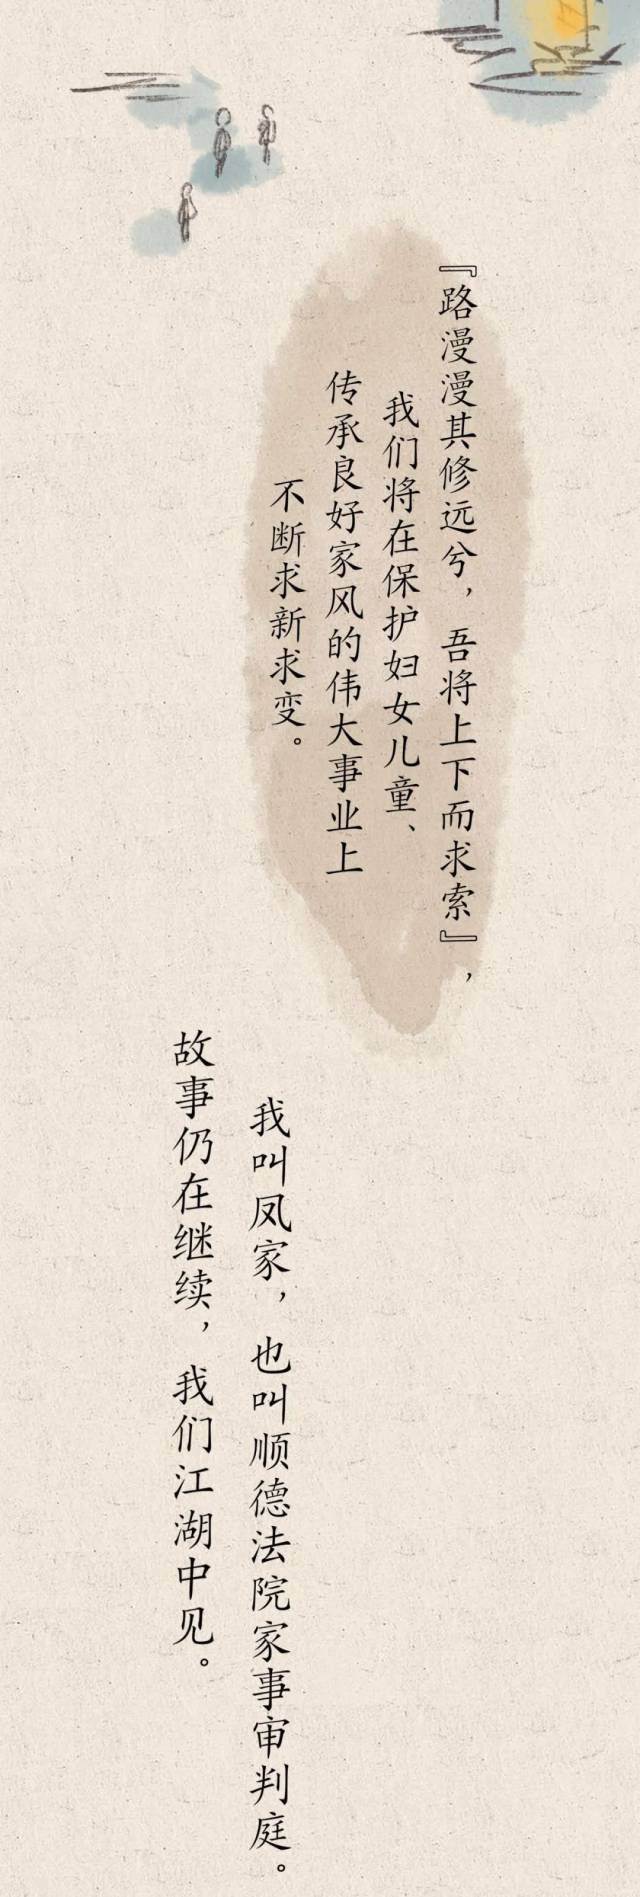 『路漫漫其修远兮，吾将上下而求索』，
我们将在保护妇女儿童、
传承良好家风的伟大事业上
不断求新求变。
我叫凤家，也叫顺德法院家事审判庭。
故事仍在继续，我们江湖中见。